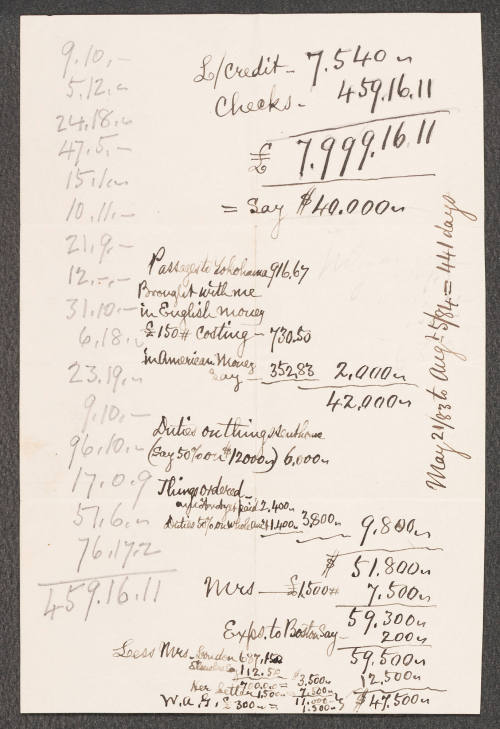 9.10.-
5.12.
24.18.
47.5.-
15.1.
10.11.-
21.9.-
12.-.-
31.10.-
6.18.
23.19.
9.10.-
96.10.
17.0.9
51.6.
76.17.2
459.16.11
£/credit - 7.540
Checks - 459.16.11
£ 7.999.16.11
= Say $40.000
Passage to Yokohama 916.67
Brought with me
in English money
£150 costing - 730.50
in American Money
Say - 352.83 2,000
42,000
Duties on things sent home
(Say 50% on $12000) 6,000
Things ordered
paid 2.400
Duties 50% on 1.400 3,800 9.800
$ 51.800
Mrs - £1,500 7.500
59.300
Exps. to Boston Say - 200
59.500
Less Mrs. London 687.50
112.50 $3.500 12.500
Her letter 1.500 7.500 $47.500
W.A.G. £300 = 1.500
May 21/83 to Augt 5/84 = 441 days